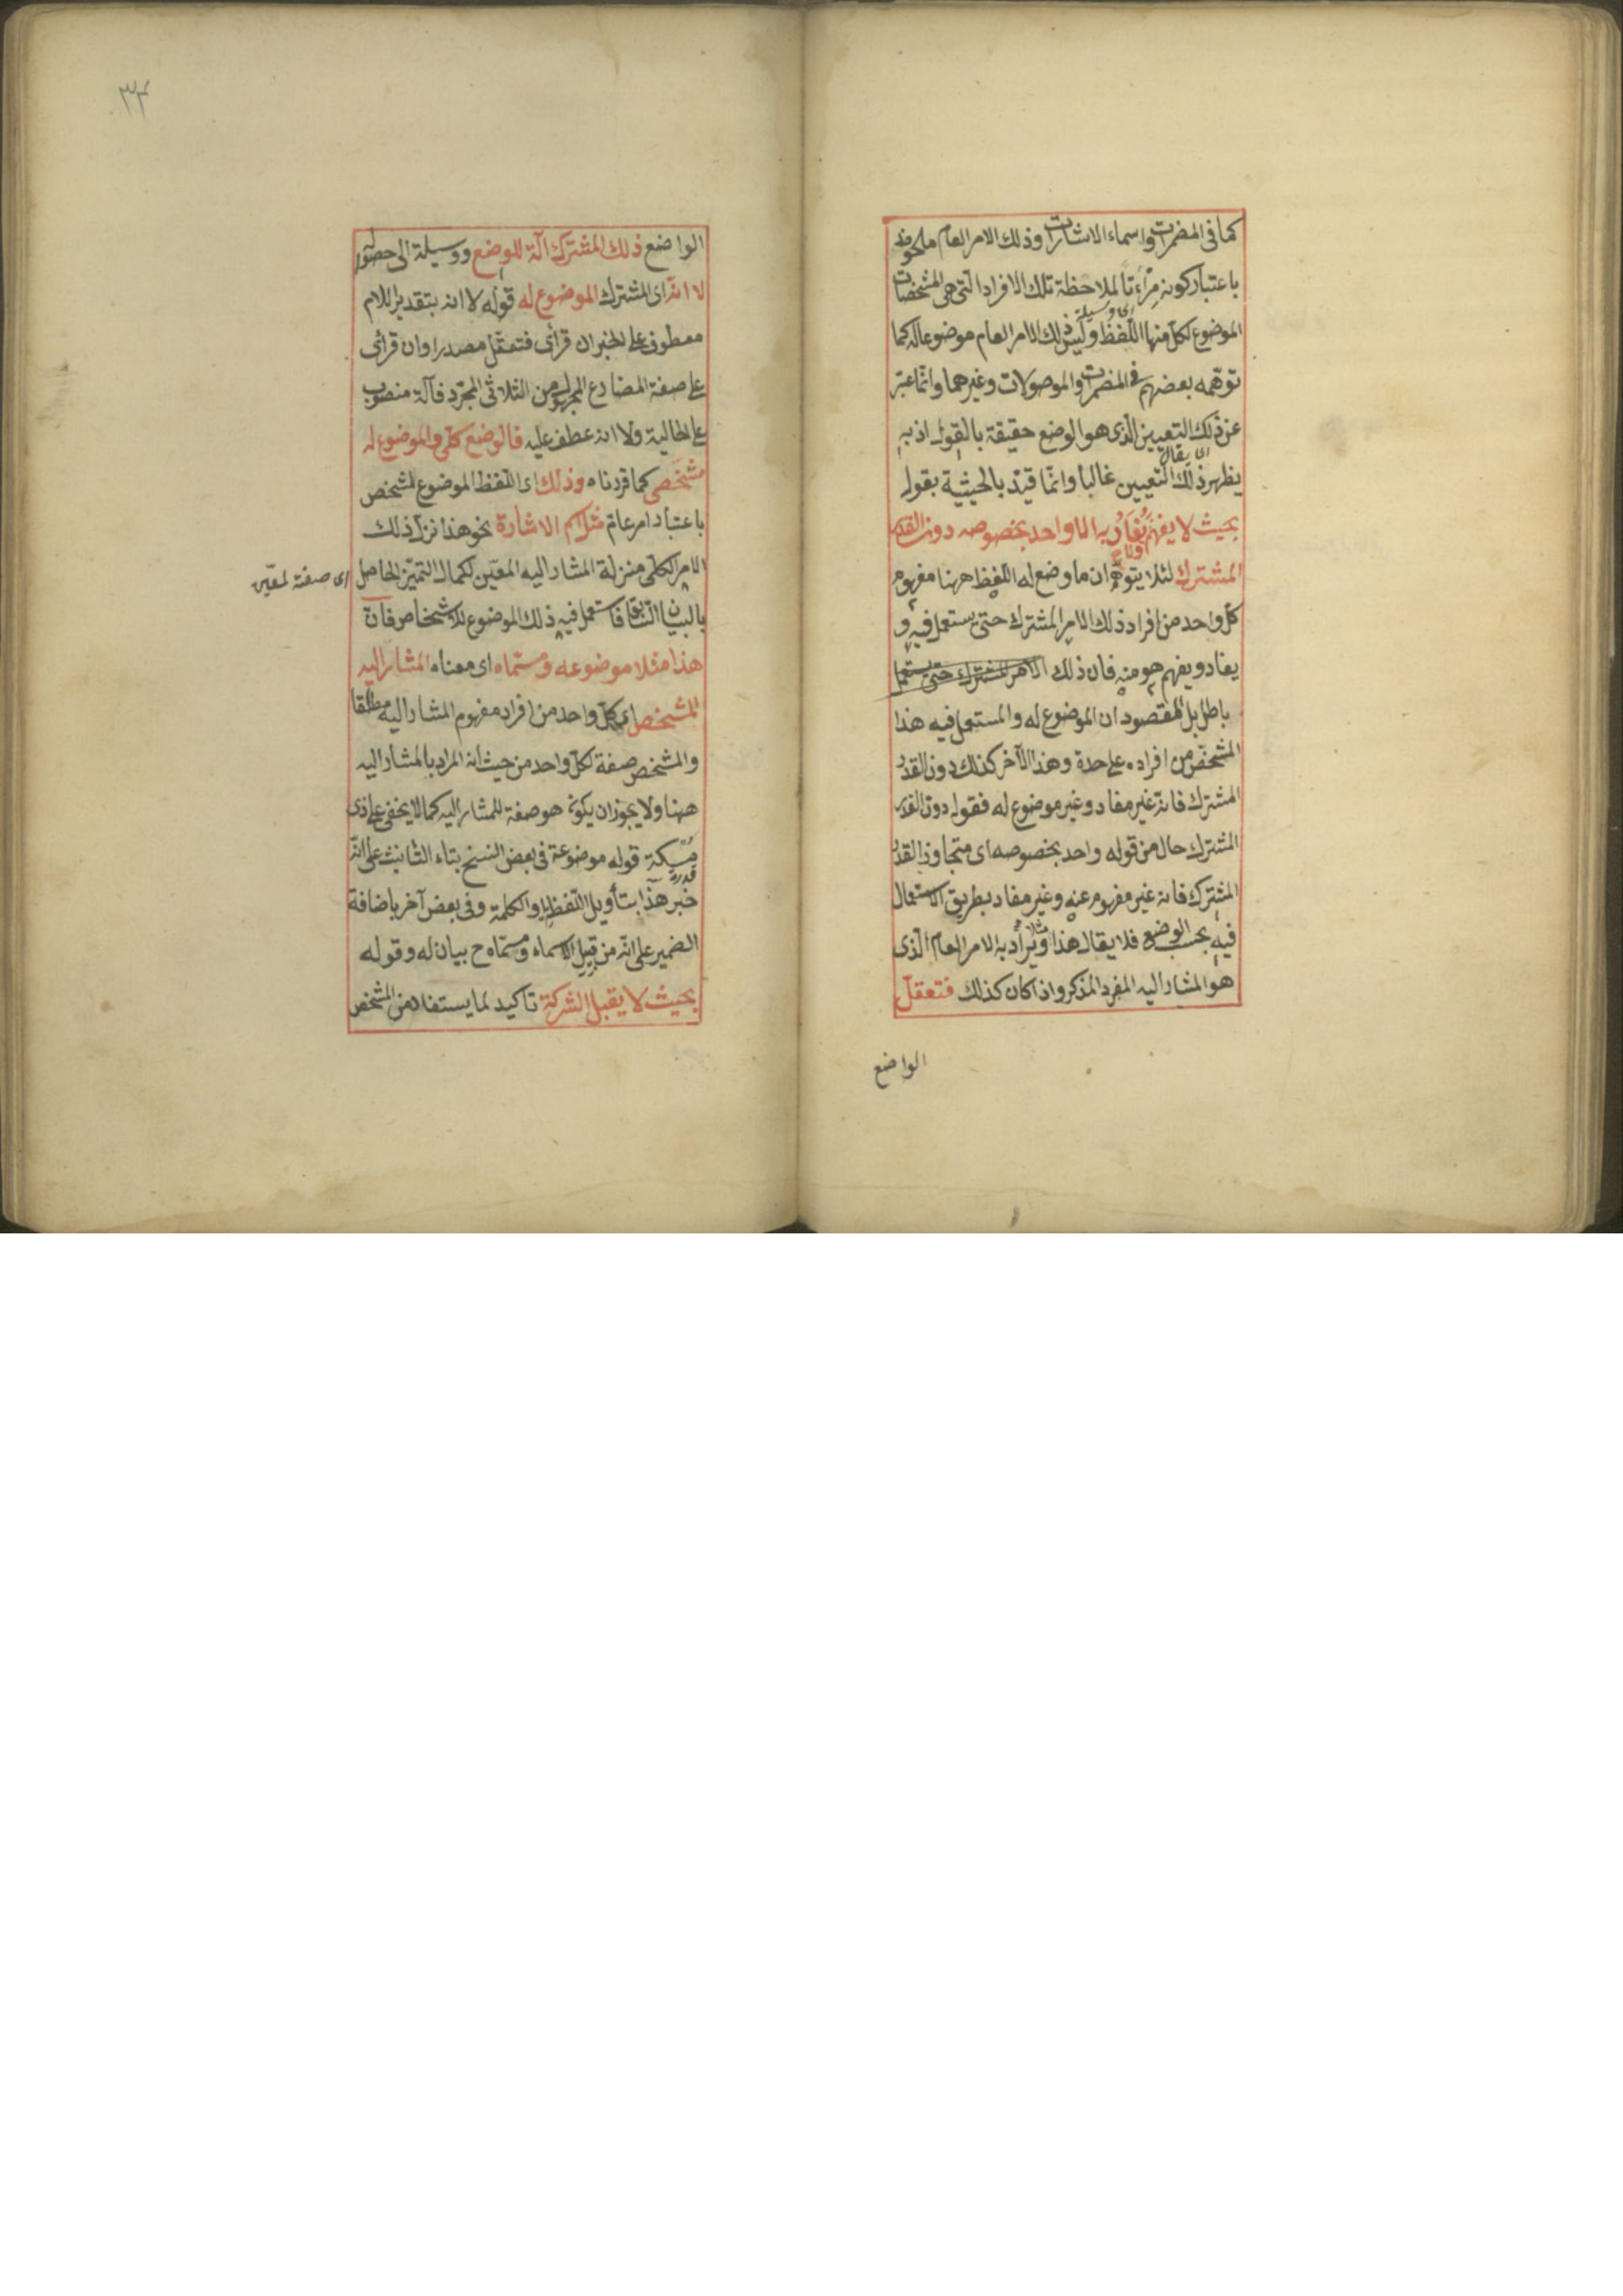 كما فى المضمرات واسماء الاشارات وذلك الامر العام ملحوظ
باعتبار كونه مرأتا لملاحظة تلك الافراد التى هى المشخصات
اى وسيلة
الموضوع لكل منها اللفظ وليس ذلك الامر العام موضوعا له كما
توهمه بعضهم فى المضمرات والموصولات وغيرهما وانما عبّر
عن ذلك التعيين الذى هو الوضع حقيقة بالقول اذ به
اى يقال
يظهر ذلك التعيين غالبا وانما قيّد بالحيثية بقوله
بحيث لا يفهم ويفاد به الا واحد بخصوصه دون القدر
المشترك لئلا يتوهم ان ما وضع له اللفظ ههنا مفهوم
كل واحد من افراد ذلك الامر المشترك حتى يستعمل فيه و
يفاد ويفهم هو منه فان ذلك الامر المشترك حتى يستعمل
باطل بل المقصود ان الموضوع له والمستعمل فيه هذا
المشخص من افراده على حدة وهذا الآخر كذلك دون القدر
المشترك فانه غير مفاد وغير موضوع له فقوله دون القدر
المشترك حال من قوله واحد بخصوصه اى متجاوز القدر
المشترك فانه غير مفهوم عنه وغير مفاد بطريق الاستعمال
فيه بحسب الوضع فلا يقال هذا مثلا ويراد به الامر العام الذى
هو المشار اليه المفرد المذكر واذا كان كذلك فتعقل
الواضع
٣٤
الواضع ذلك المشترك آلة للوضع ووسيلة الى حصوله
لا انه اى المشترك الموضوع له قوله لا انه بتقدير اللام
معطوف على الخبر ان قرأى فتعقل مصدرا وان قرأى
على صفة المضارع المجهول من الثلاثى المجرد فآلة منصوب
على الحالية ولا انه عطف عليه فالوضع كلى والموضوع له
مشخص كما قررناه وذلك اى اللفظ الموضوع لمشخص
باعتبار امر عام مثل اسم الاشارة نحو هذا نزل ذلك
الامر الكلى منزلة المشار اليه المعين لكمال التميز الحاصل
اى صفة لمعيّن
بالبيان السابق فاستعمل فيه ذلك الموضوع للاشخاص فان
هذا مثلا موضوعه ومسمّاه اى معناه المشار اليه
المشخص اى كل واحد من افراد مفهوم المشار اليه مطلقا
والمشخص صفة لكل واحد من حيث انه المراد بالمشار اليه
ههنا ولا يجوز ان يكون هو صفة للمشار اليه كما لا يخفى على ذى
مسكة قوله موضوعة فى بعض النسخ بتاء التأنيث على انه
قدرة
خبر هذا بتأويل اللفظة او الكلمة وفى بعض آخر باضافة
الضمير على انه من قبيل الاسماء ومسمّاه ح بيان له وقوله
بحيث لا يقبل الشركة تأكيد لما يستفاد من المشخص